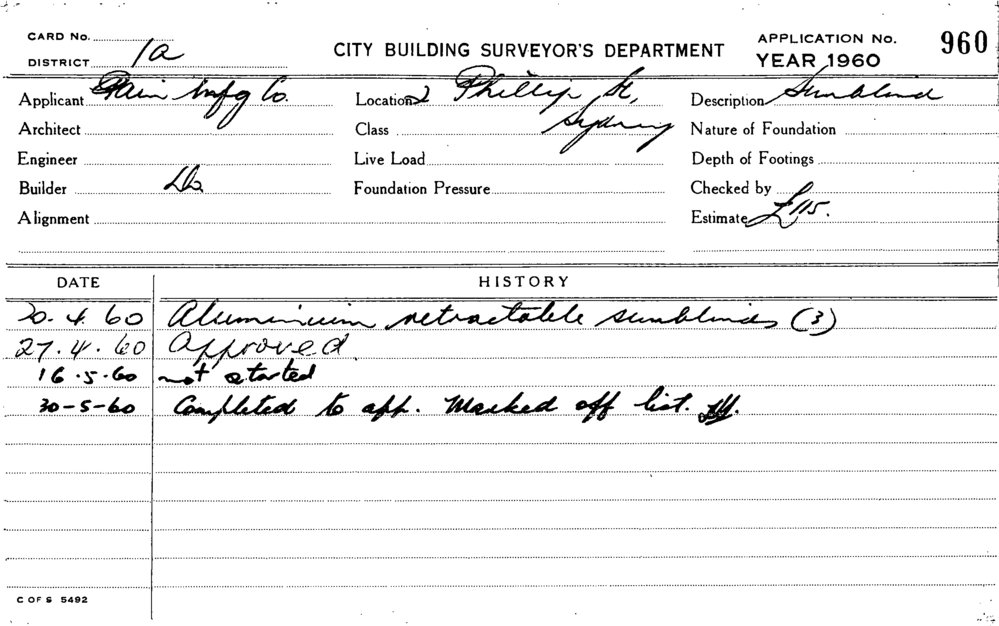 CARD No.
DISTRICT 1a
CITY BUILDING SURVEYOR'S DEPARTMENT
APPLICATION No. 960
YEAR 1960
Applicant Mfg Co.
Location 2 Phillip St,
Sydney
Description Sunblind
Architect
Class
Nature of Foundation
Engineer
Live Load
Depth of Footings
Builder Do
Foundation Pressure
Checked by
Alignment
Estimate £115.
DATE HISTORY
20.4.60 Aluminium retractable sunblinds (3)
27.4.60 Approved.
16.5.60 not started
30-5-60 Completed to app. Marked off list.
C OF S 5492